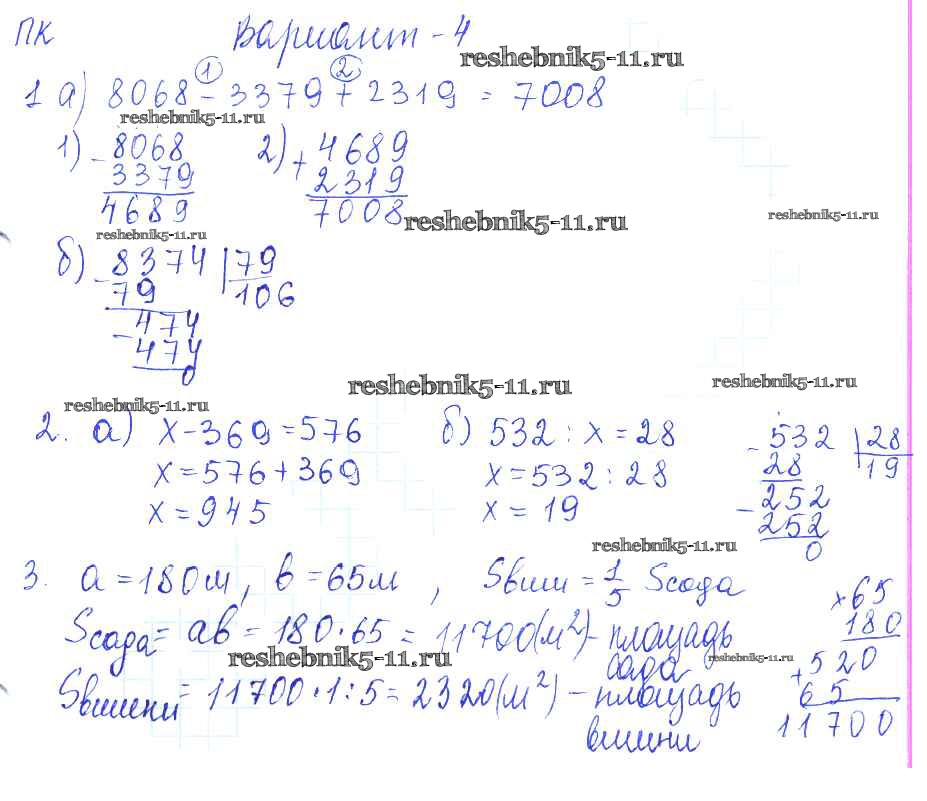 ПК Вариант - 4
reshebnik5-11.ru
① ②
1 а) 8068 - 3379 + 2319 = 7008
reshebnik5-11.ru
1) - 8068 2) + 4689
3379 2319
4689 7008
reshebnik5-11.ru reshebnik5-11.ru
reshebnik5-11.ru
б) - 8374 | 79
79 106
- 474
474
0
reshebnik5-11.ru reshebnik5-11.ru
reshebnik5-11.ru
2. а) x - 369 = 576 б) 532 : x = 28 - 532 | 28
x = 576 + 369 x = 532 : 28 28 19
x = 945 x = 19 - 252
252
0
reshebnik5-11.ru
3. a = 180м, b = 65м, Sвиш = 1/5 Sсада × 65
Sсада = ab = 180 · 65 = 11700(м²) - площадь 180
сада + 520
reshebnik5-11.ru reshebnik5-11.ru
Sвишни = 11700 · 1 : 5 = 2320(м²) - площадь 65
вишни 11700